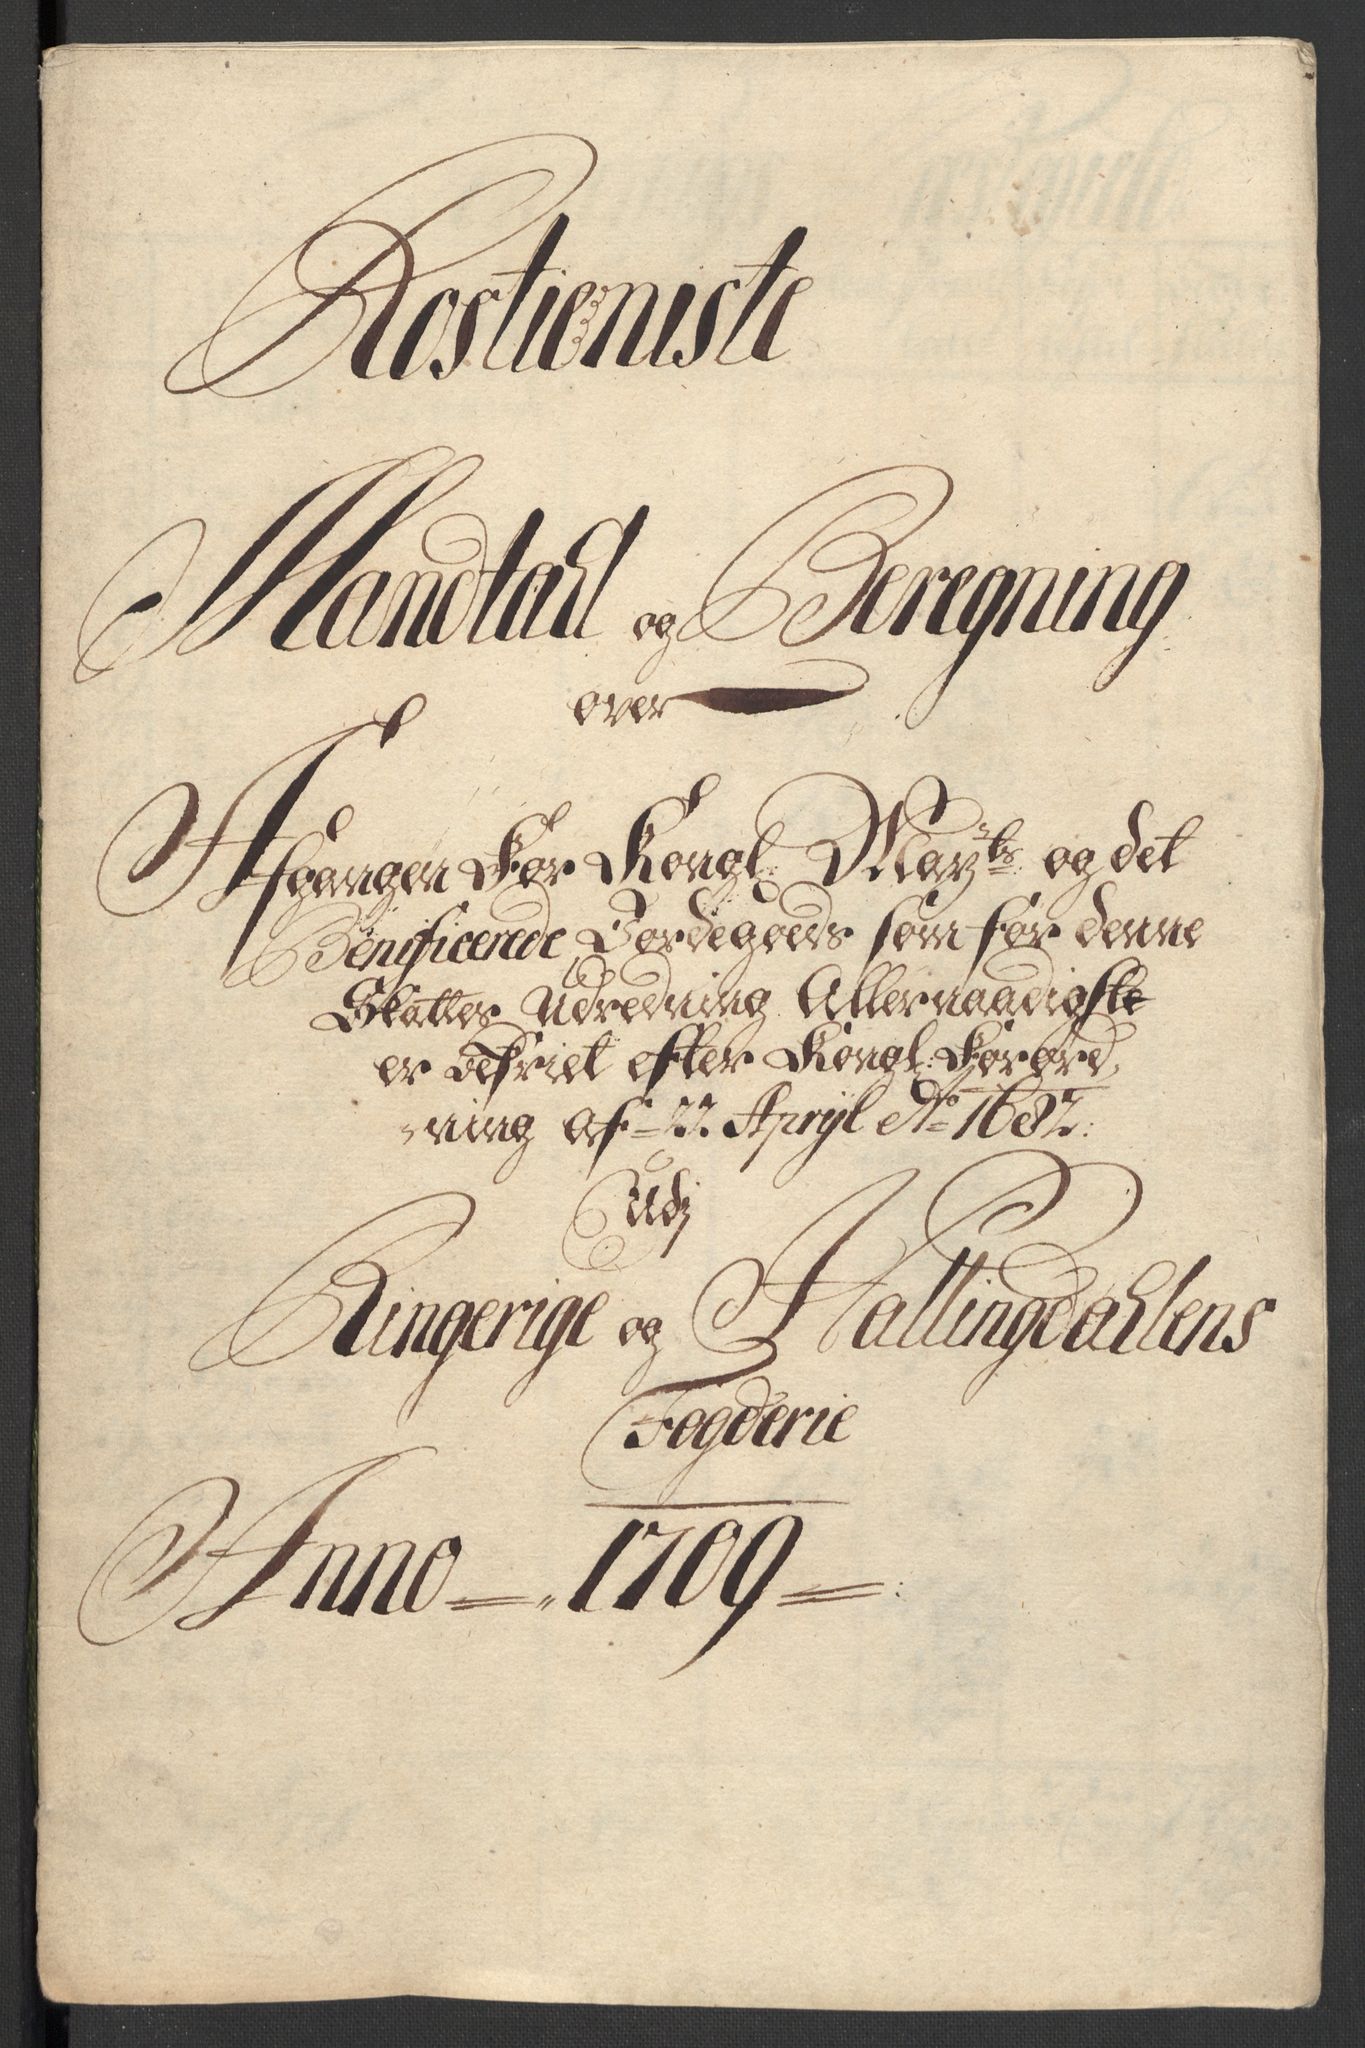 Rostieniste
Mandtall og Beregning
over
Afgangen for Kongl: Mayts og det
Benificerede Jordegoeds som for denne
Skattes Udredning Allernaadigste
er befriet efter Kongl: Forord
ning af 22 Aprijl Ao 1682:
Udj
Ringerige og Hallingdahlens
Fogderie
Anno 1709